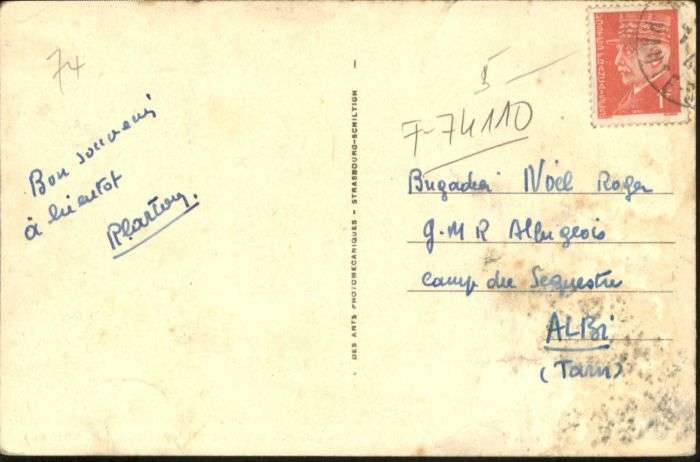 74
Bon souvenir
à bientot
5 —
F-74110
Brigadier Noël Roger
G.M.R Albigeois
Camp du Sequestre
ALBi
(Tarn)
DES ARTS PHOTOMECANIQUES - STRASBOURG-SCHILTIGH
HAUTE-